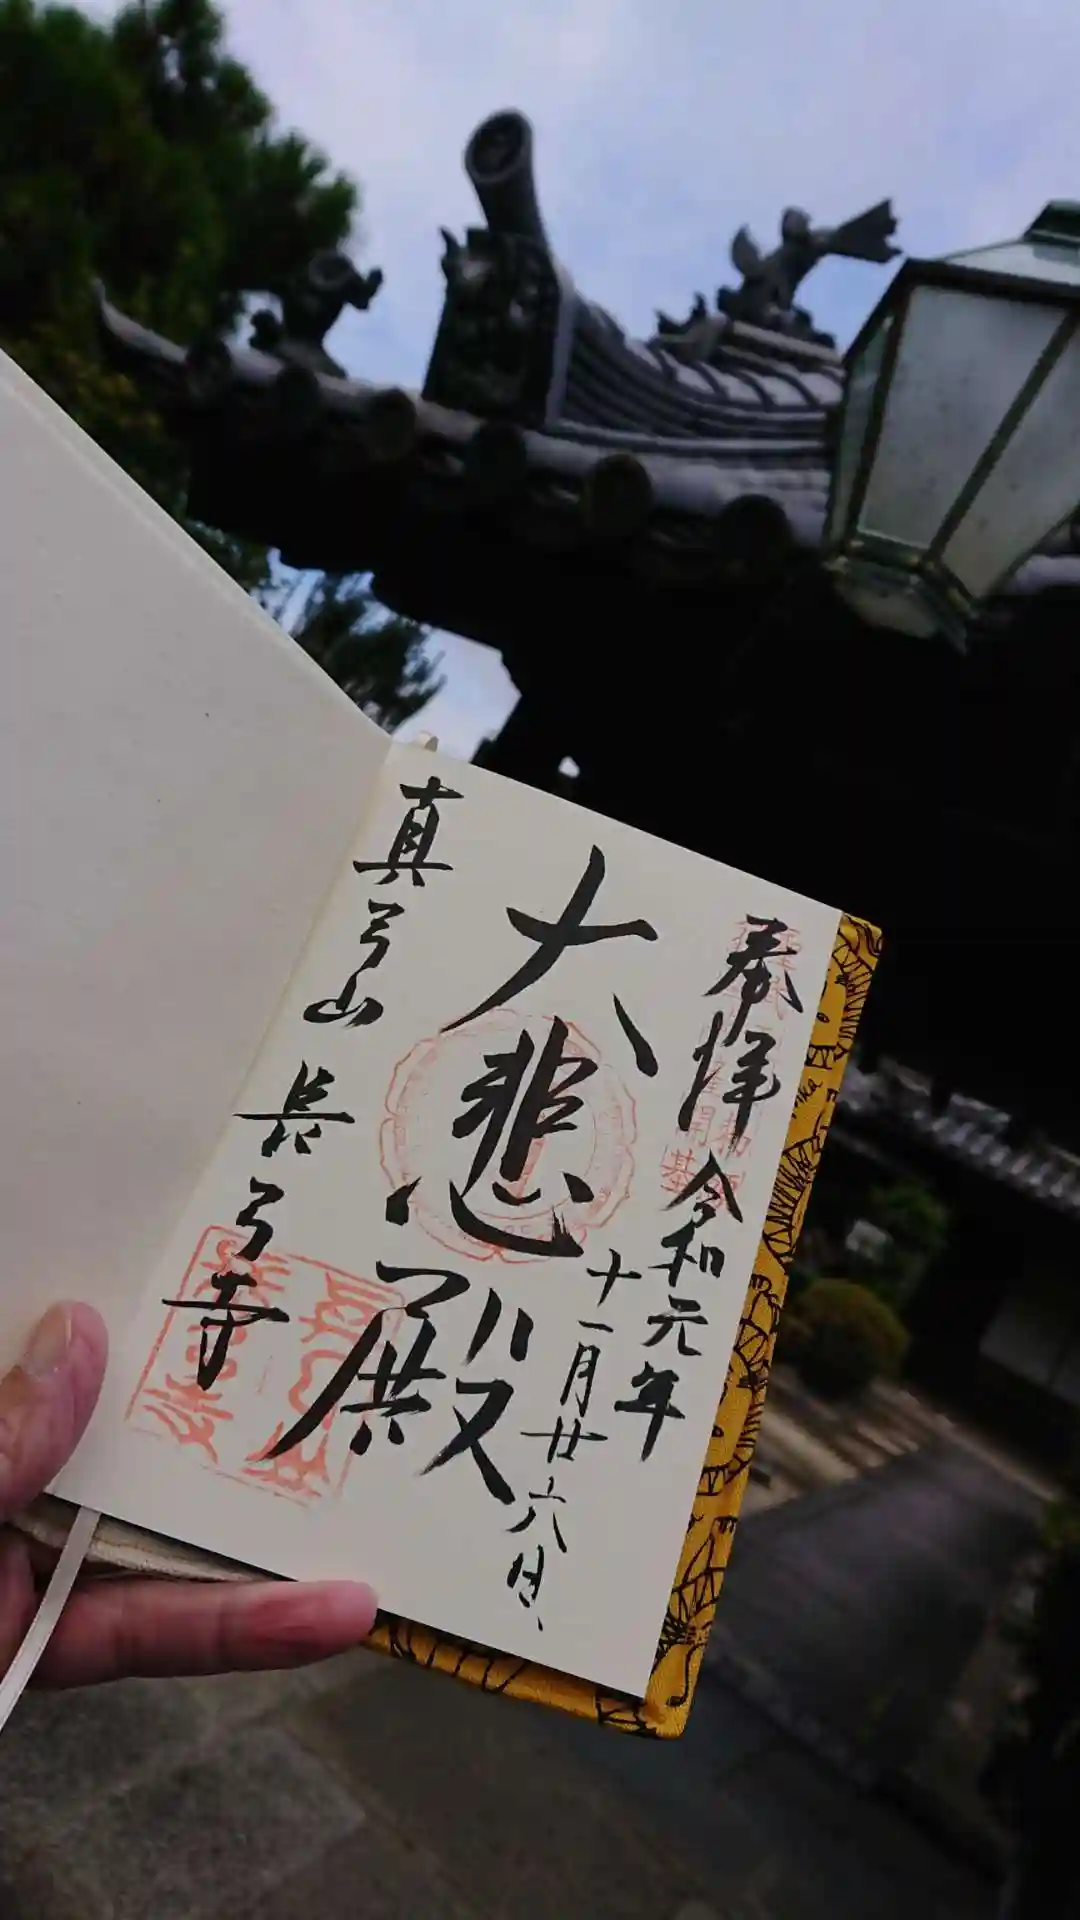 奉拝 令和元年
十一月廿六日、
大悲殿
真弓山 長弓寺